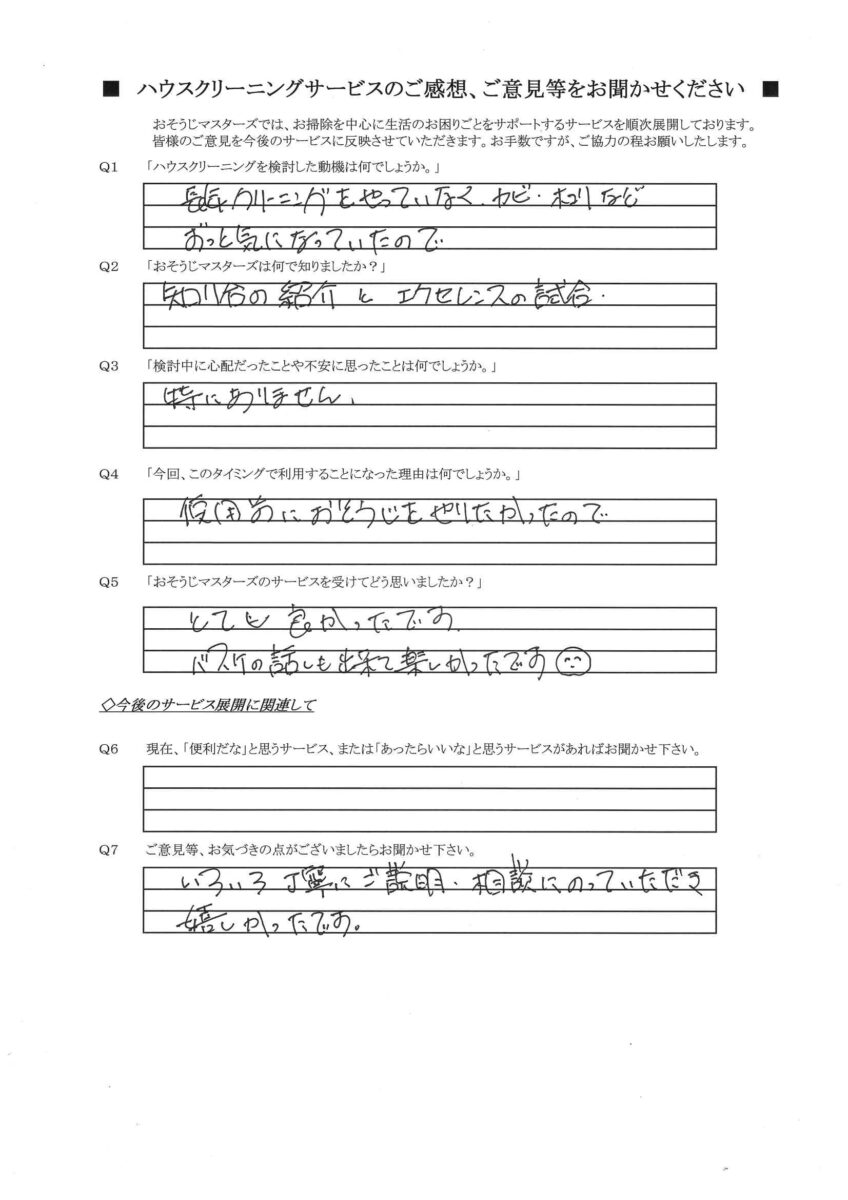 ■ ハウスクリーニングサービスのご感想、ご意見等をお聞かせください ■
おそうじマスターズでは、お掃除を中心に生活のお困りごとをサポートするサービスを順次展開しております。
皆様のご意見を今後のサービスに反映させていただきます。お手数ですが、ご協力の程お願いしたします。
Q1 「ハウスクリーニングを検討した動機は何でしょうか。」
クリーニングをやっていなく、カビ・ホコリなど
ずっと気になっていたので
Q2 「おそうじマスターズは何で知りましたか？」
知り合の紹介 と エクセレンスの試合.
Q3 「検討中に心配だったことや不安に思ったことは何でしょうか。」
特にありません、
Q4 「今回、このタイミングで利用することになった理由は何でしょうか。」
使用前におそうじをやりたかったので
Q5 「おそうじマスターズのサービスを受けてどう思いましたか？」
とても良かったです
バスケの話しも出来て楽しかったです
◇今後のサービス展開に関連して
Q6 現在、「便利だな」と思うサービス、または「あったらいいな」と思うサービスがあればお聞かせ下さい。
Q7 ご意見等、お気づきの点がございましたらお聞かせ下さい。
いろいろ丁寧にご説明・相談にのっていただき
嬉しかったです。